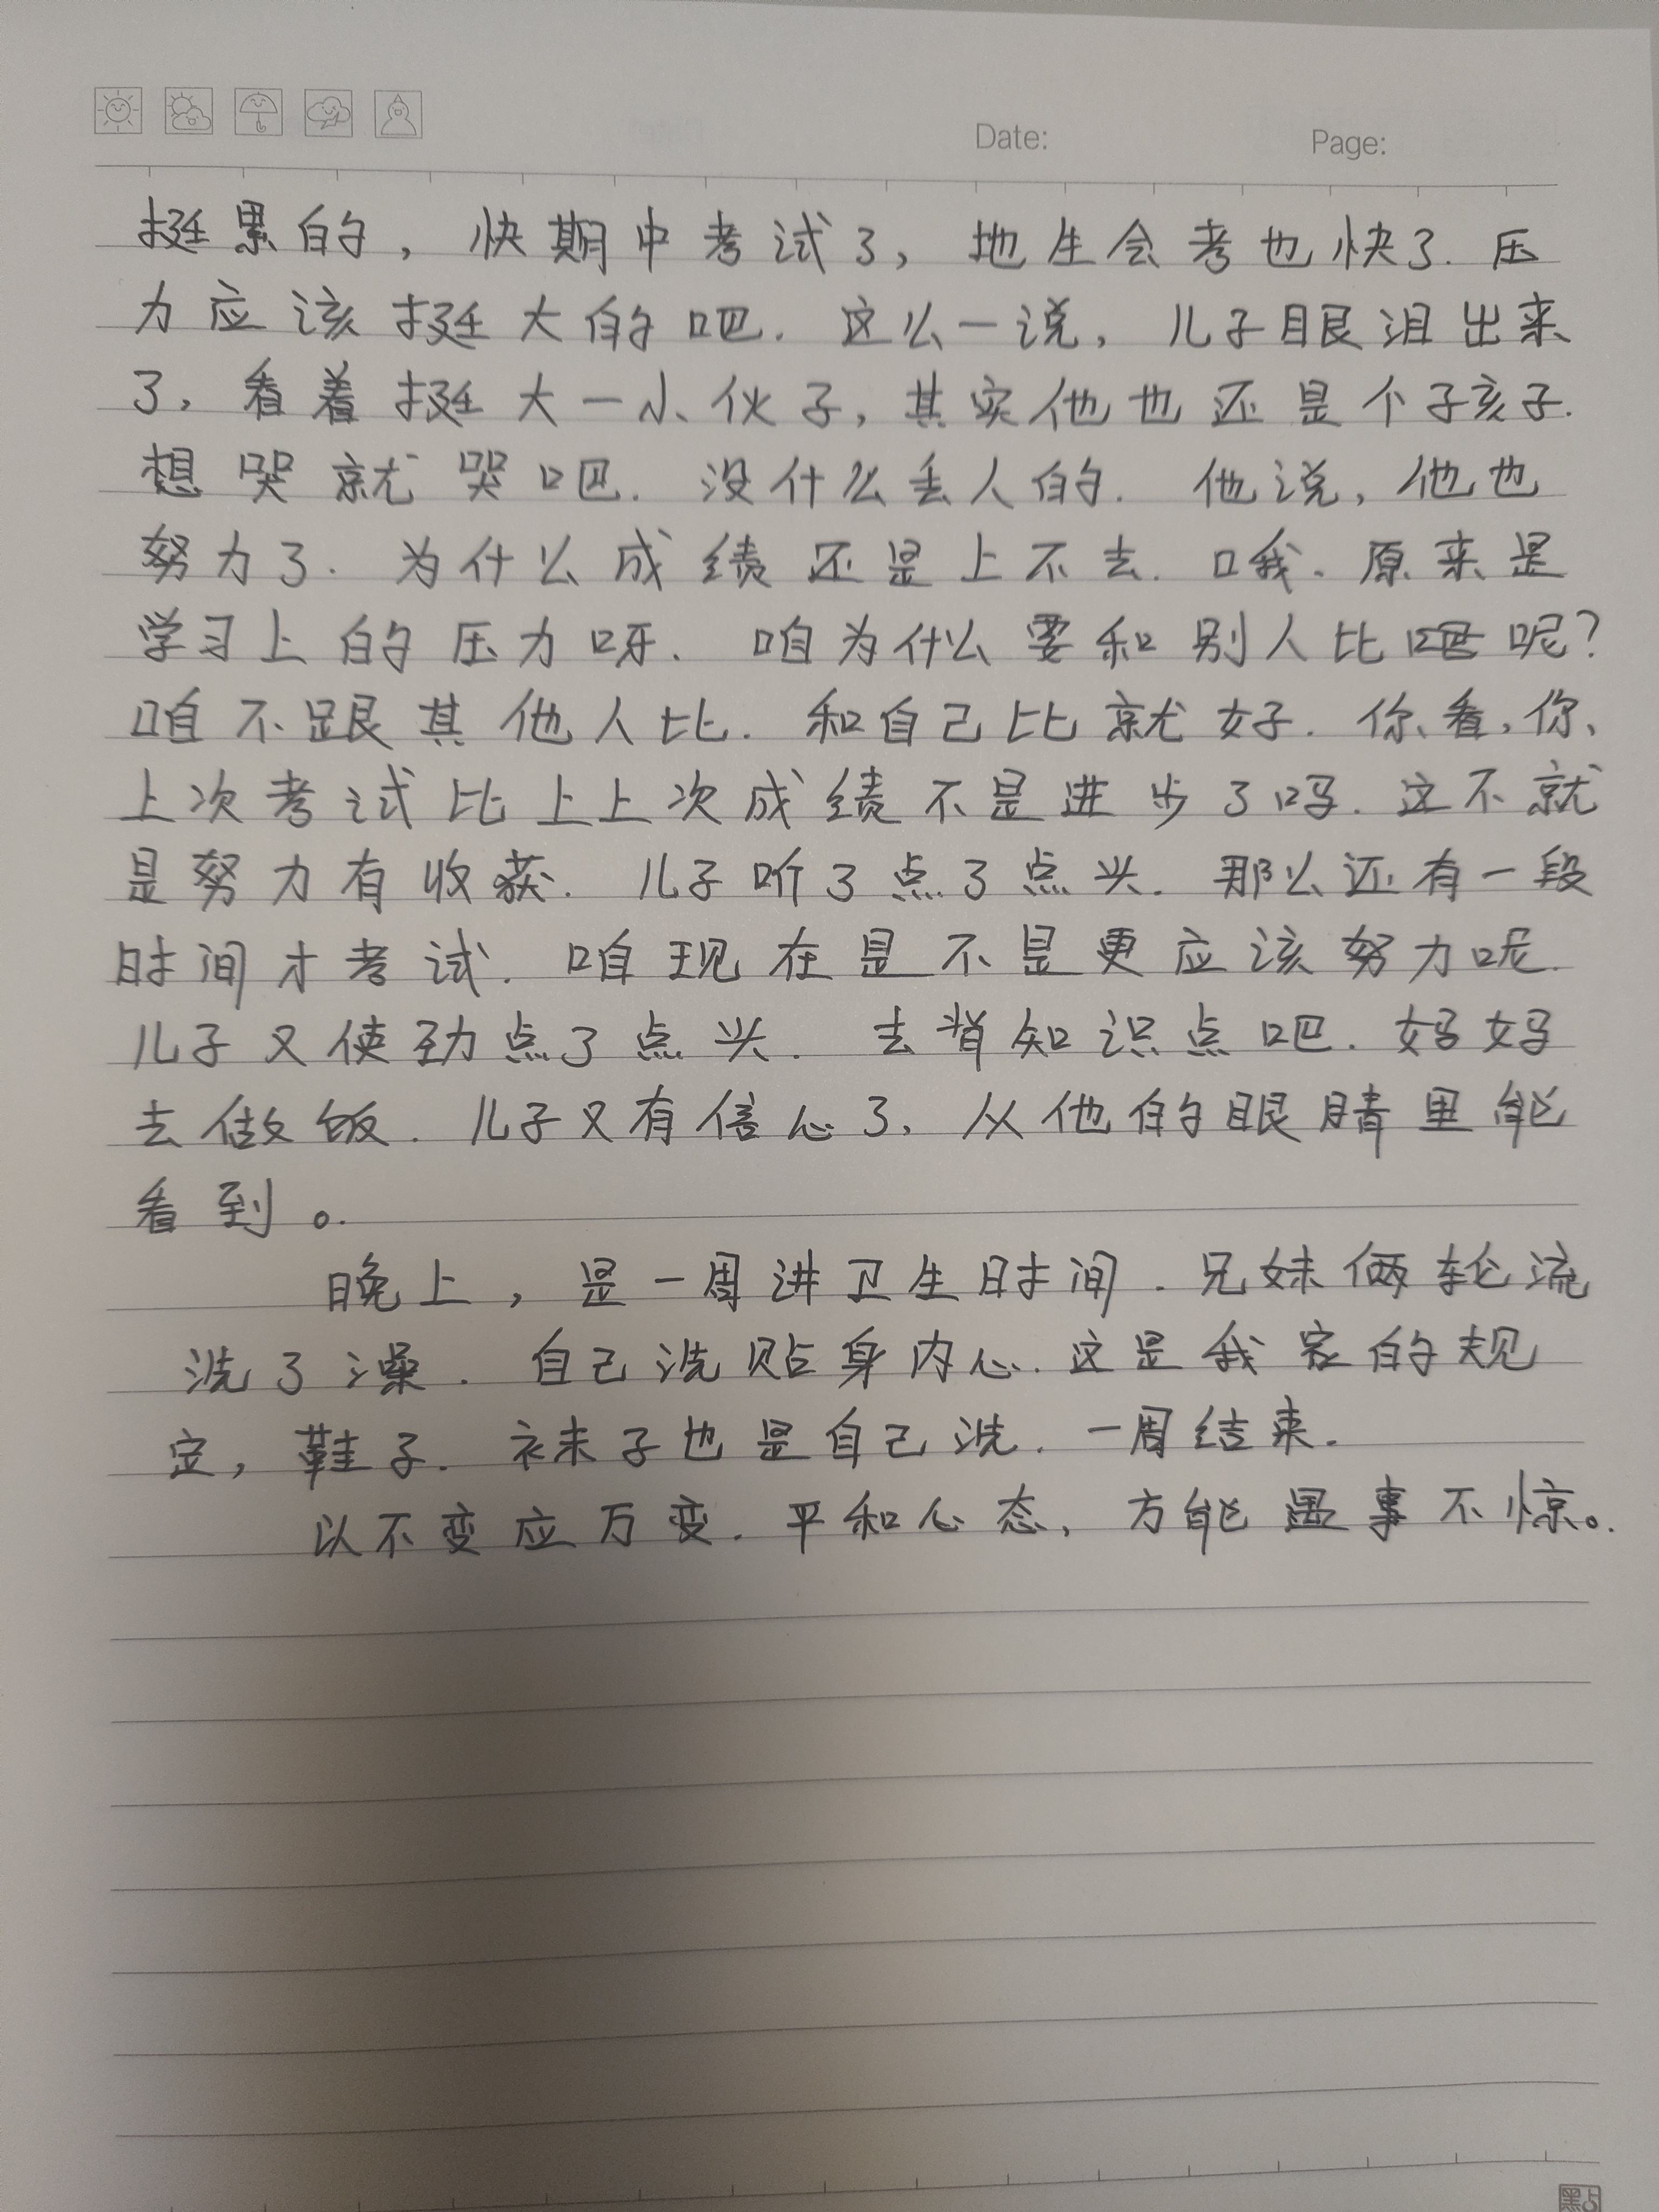 Date: Page:
挺累的，快期中考试了，地生会考也快了.压
力应该挺大的吧.这么一说，儿子眼泪出来
了，看着挺大一小伙子，其实他也还是个子孩子.
想哭就哭吧.没什么丢人的.他说，他也
努力了.为什么成绩还是上不去.哦.原来是
学习上的压力呀.咱为什么要和别人比呢？
咱不跟其他人比.和自己比就好.你看，你、
上次考试比上上次成绩不是进步了吗.这不就
是努力有收获.儿子听了点了点头.那么还有一段
时间才考试.咱现在是不是更应该努力呢.
儿子又使劲点了点头.去背知识点吧.妈妈
去做饭.儿子又有信心了，从他的眼睛里能
看到。
晚上，是一周讲卫生时间.兄妹俩轮流
洗了澡.自己洗贴身内心.这是我家的规
定，鞋子.袜子也是自己洗.一周结束.
以不变应万变.平和心态，方能遇事不惊。